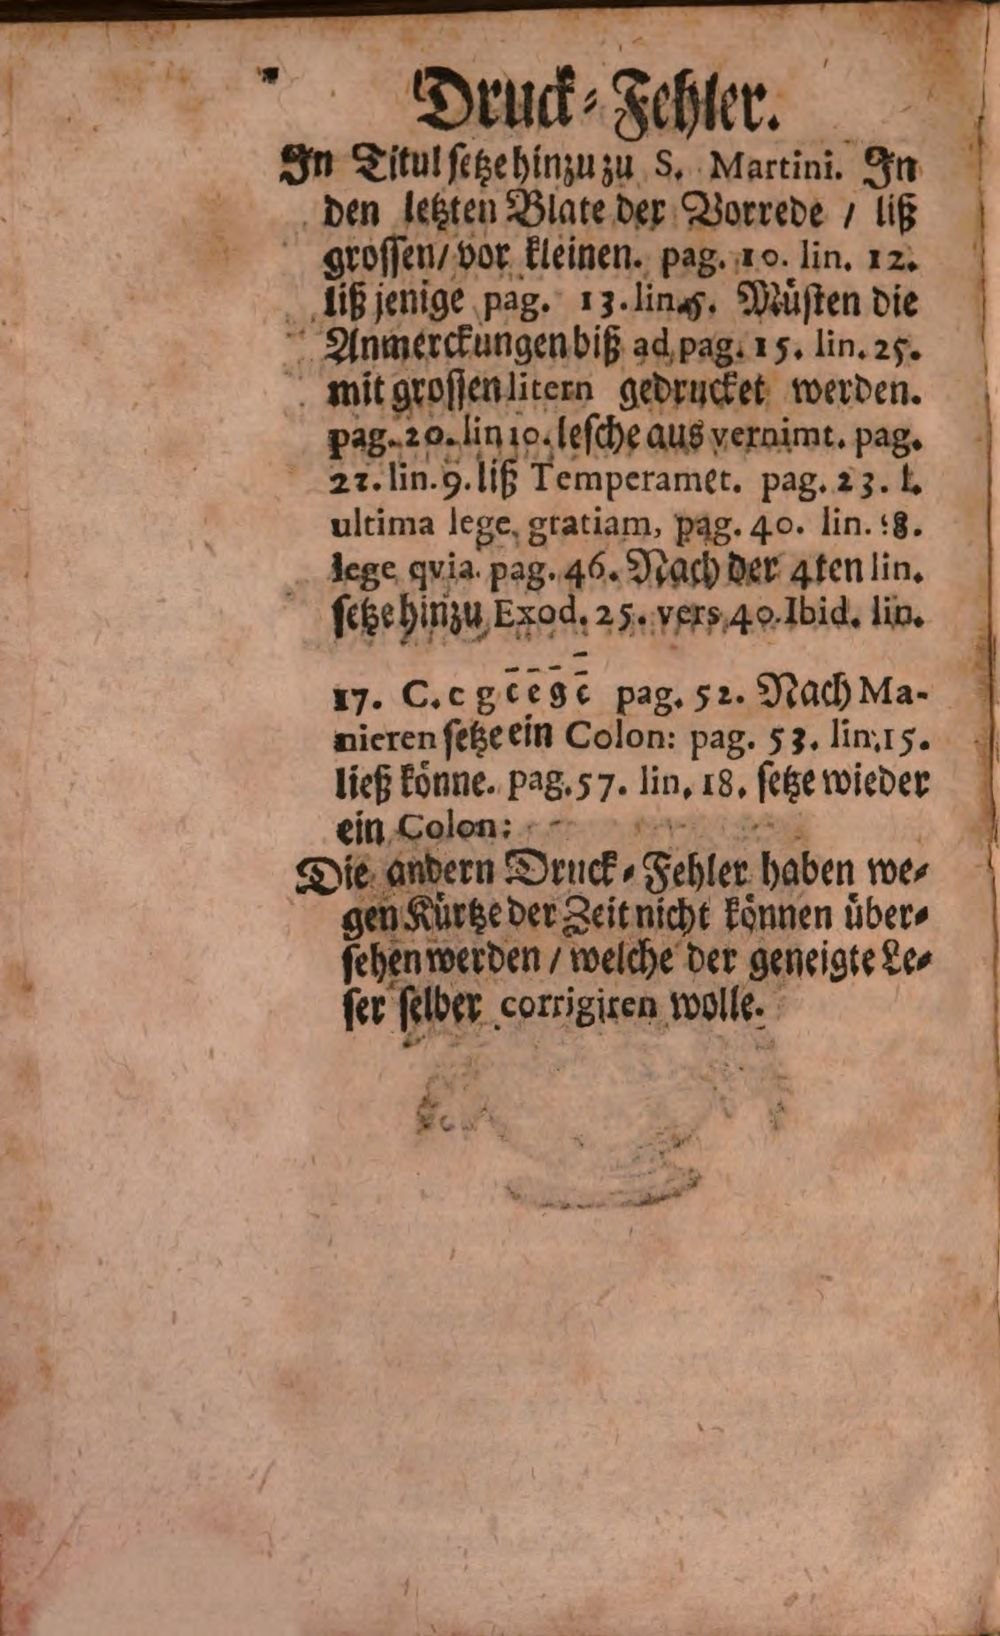 Druck-Fehler.
In Titul setze hinzu zu S. Martini. In
den letzten Blate der Vorrede / liß
grossen/ vor kleinen. pag. 10. lin. 12.
liß jenige pag. 13. lin. 5. Müsten die
Anmerckungen biß ad pag. 15. lin. 25.
mit grossen litern gedrucket werden.
pag. 20. lin 10. lesche aus vernimt. pag.
21. lin. 9. liß Temperamet. pag. 23. l.
ultima lege gratiam, pag. 40. lin. 18.
lege qvia. pag. 46. Nach der 4ten lin.
setze hinzu Exod. 25. vers 40. Ibid. lin.
17. C. c g c̄ ē ḡ c̿ pag. 52. Nach Ma-
nieren setze ein Colon: pag. 53. lin. 15.
ließ könne. pag. 57. lin. 18. setze wieder
ein Colon:
Die andern Druck-Fehler haben we-
gen Kürtze der Zeit nicht können über-
sehen werden / welche der geneigte Le-
ser selber corrigiren wolle.